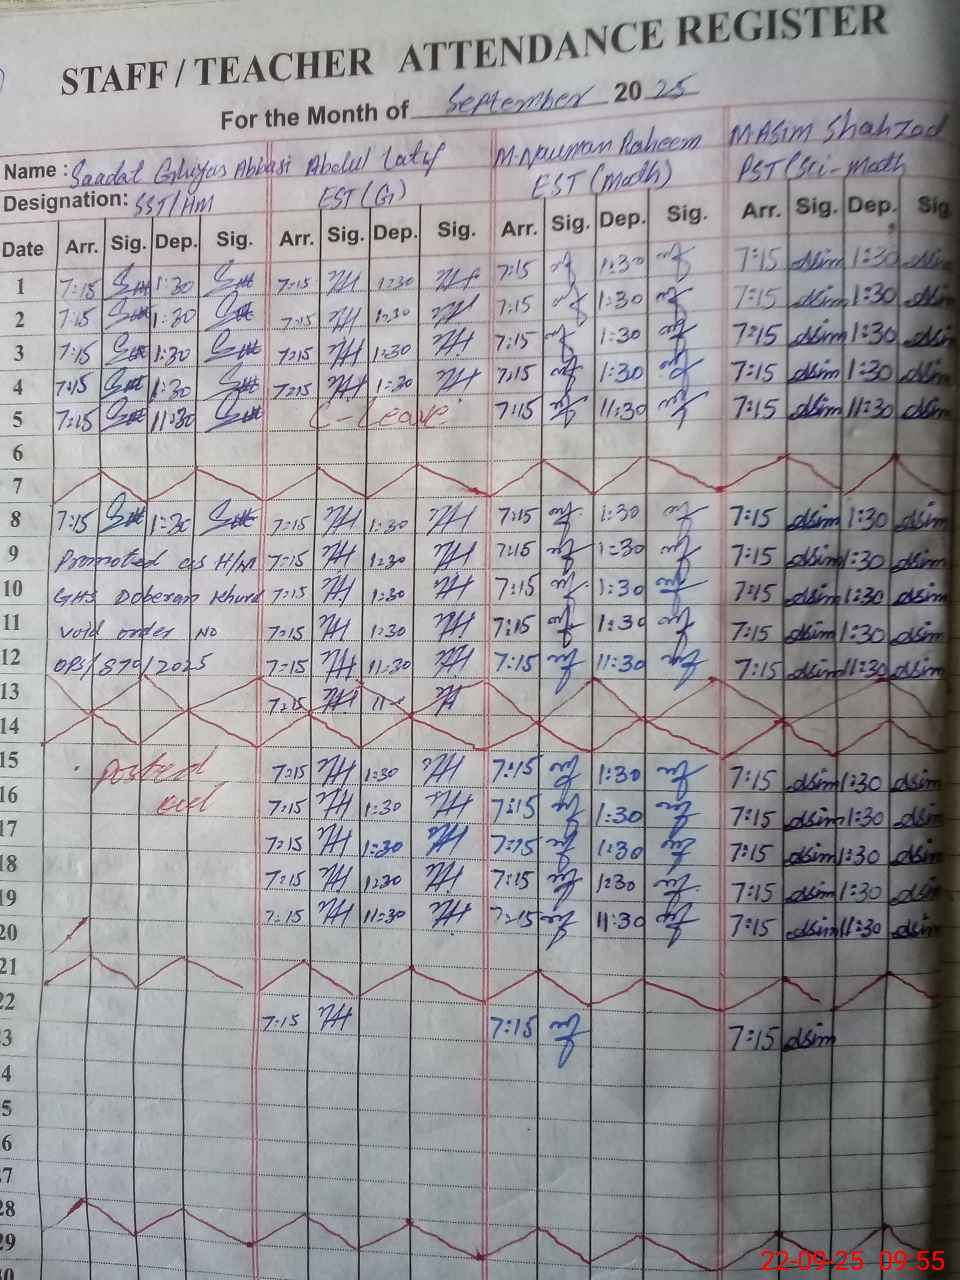 STAFF / TEACHER ATTENDANCE REGISTER
For the Month of September 20 25
Name : Saadat Ghiyas Abbasi Abdul Latif M-Nauman Raheem M-Asim Shahzad
Designation: SST/HM EST (G) EST (Math) PST (Sci-Math
Date Arr. Sig. Dep. Sig. Arr. Sig. Dep. Sig. Arr. Sig. Dep. Sig. Arr. Sig. Dep. Sig
1 7:15 1:30 7:15 1:30 7:15 1:30 7:15 Asim 1:30 Asim
2 7:15 1:30 7:15 1:30 7:15 1:30 7:15 Asim 1:30 Asim
3 7:15 1:30 7:15 1:30 7:15 1:30 7:15 Asim 1:30 Asim
4 7:15 1:30 7:15 1:30 7:15 1:30 7:15 Asim 1:30 Asim
5 7:15 11:30 C-Leave 7:15 11:30 7:15 Asim 11:30 Asim
6
7
8 7:15 1:30 7:15 1:30 7:15 1:30 7:15 Asim 1:30 Asim
9 Promoted as H/M 7:15 1:30 7:15 1:30 7:15 Asim 1:30 Asim
10 GHS Doberan Khurd 7:15 1:30 7:15 1:30 7:15 Asim 1:30 Asim
11 void order NO 7:15 1:30 7:15 1:30 7:15 Asim 1:30 Asim
12 /870/2025 7:15 11:30 7:15 11:30 7:15 Asim 11:30 Asim
13 7:15 11
14
15 Posted 7:15 1:30 7:15 1:30 7:15 Asim 1:30 Asim
16 out 7:15 1:30 7:15 1:30 7:15 Asim 1:30 Asim
17 7:15 1:30 7:15 1:30 7:15 Asim 1:30 Asim
18 7:15 1:30 7:15 1:30 7:15 Asim 1:30 Asim
19 7:15 11:30 7:15 11:30 7:15 Asim 11:30 Asim
20
21
22 7:15 7:15 7:15 Asim
3
4
5
6
7
28
29
30
22-09-25 09:55